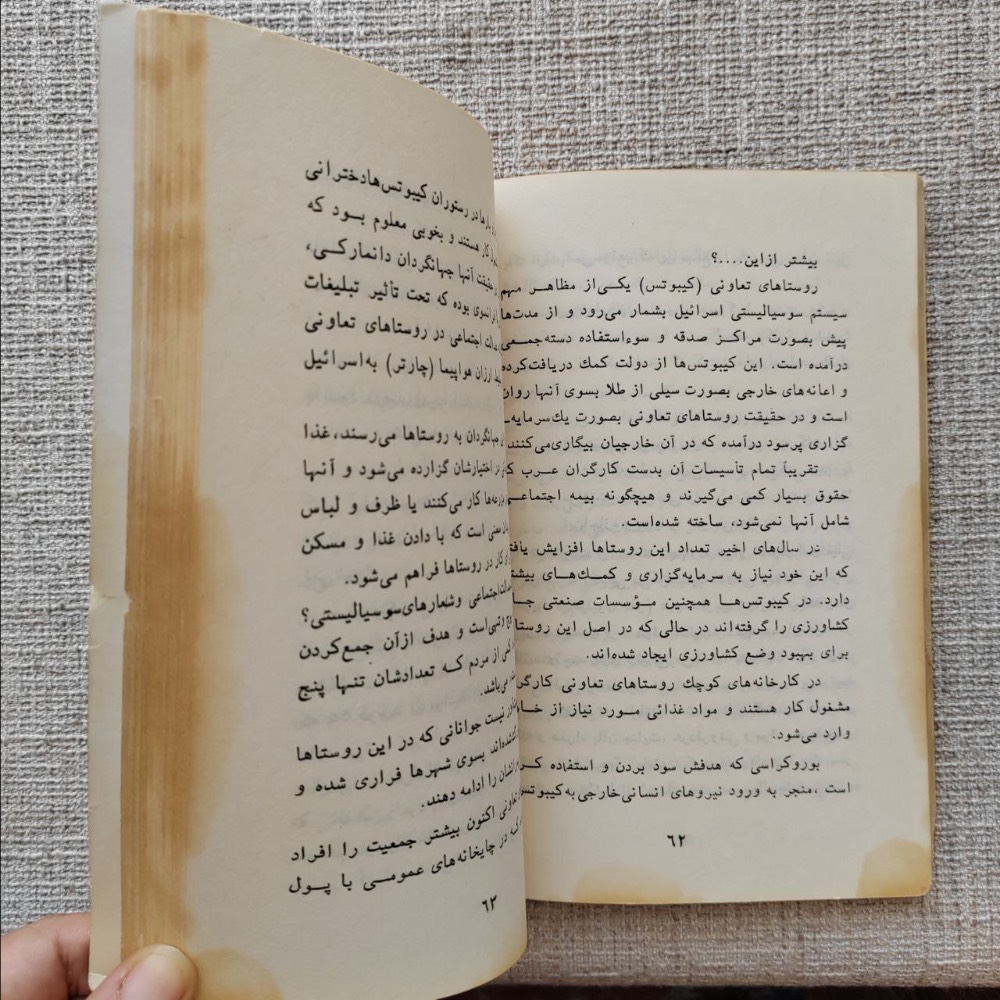 بیشتر ازاین....؟
روستاهای تعاونی (کیبوتس) یکی‌از مظاهر مهم
سیستم سوسیالیستی اسرائیل بشمار می‌رود و از مدت‌ها
پیش بصورت مراکز صدقه و سوءاستفاده دسته‌جمعی
درآمده است. این کیبوتس‌ها از دولت کمك دریافت‌کرده
و اعانه‌های خارجی بصورت سیلی از طلا بسوی آنها روان
است و در حقیقت روستاهای تعاونی بصورت یك‌سرمایه‌ـ
گزاری پرسود درآمده که در آن خارجیان بیگاری‌می‌کنند
تقریباً تمام تأسیسات آن بدست کارگران عرب
حقوق بسیار کمی می‌گیرند و هیچگونه بیمه اجتماعی
شامل آنها نمی‌شود، ساخته شده‌است.
در سال‌های اخیر تعداد این روستاها افزایش
که این خود نیاز به سرمایه‌گزاری و کمك‌های
دارد. در کیبوتس‌ها همچنین مؤسسات صنعتی
کشاورزی را گرفته‌اند در حالی که در اصل این
برای بهبود وضع کشاورزی ایجاد شده‌اند.
در کارخانه‌های کوچك روستاهای تعاونی
مشغول کار هستند و مواد غذائی مورد نیاز از
وارد می‌شود.
بوروکراسی که هدفش سود بردن و استفاده
است ،منجر به ورود نیروهای انسانی‌خارجی‌به
۶۲
در رستوران کیبوتس‌هادخترانی
کار هستند و بخوبی معلوم بود که
حقیقت آنها جهانگردان دانمارکی،
بوده که تحت تأثیر تبلیغات
اجتماعی در روستاهای تعاونی
ارزان هواپیما (چارتر) به‌اسرائیل
به روستاها می‌رسند، غذا
اختیارشان گزارده می‌شود و آنها
کار می‌کنند یا ظرف و لباس
معنی است که با دادن غذا و مسکن
کار در روستاها فراهم می‌شود.
وشعارهای‌سوسیالیستی؟
است و هدف ازآن جمع‌کردن
از مردم که تعدادشان تنها پنج
می‌باشد.
نیست جوانانی که در این روستاها
بسوی شهرها فراری شده و
را ادامه دهند.
اکنون بیشتر جمعیت را افراد
در چایخانه‌های عمومی با پول
۶۳